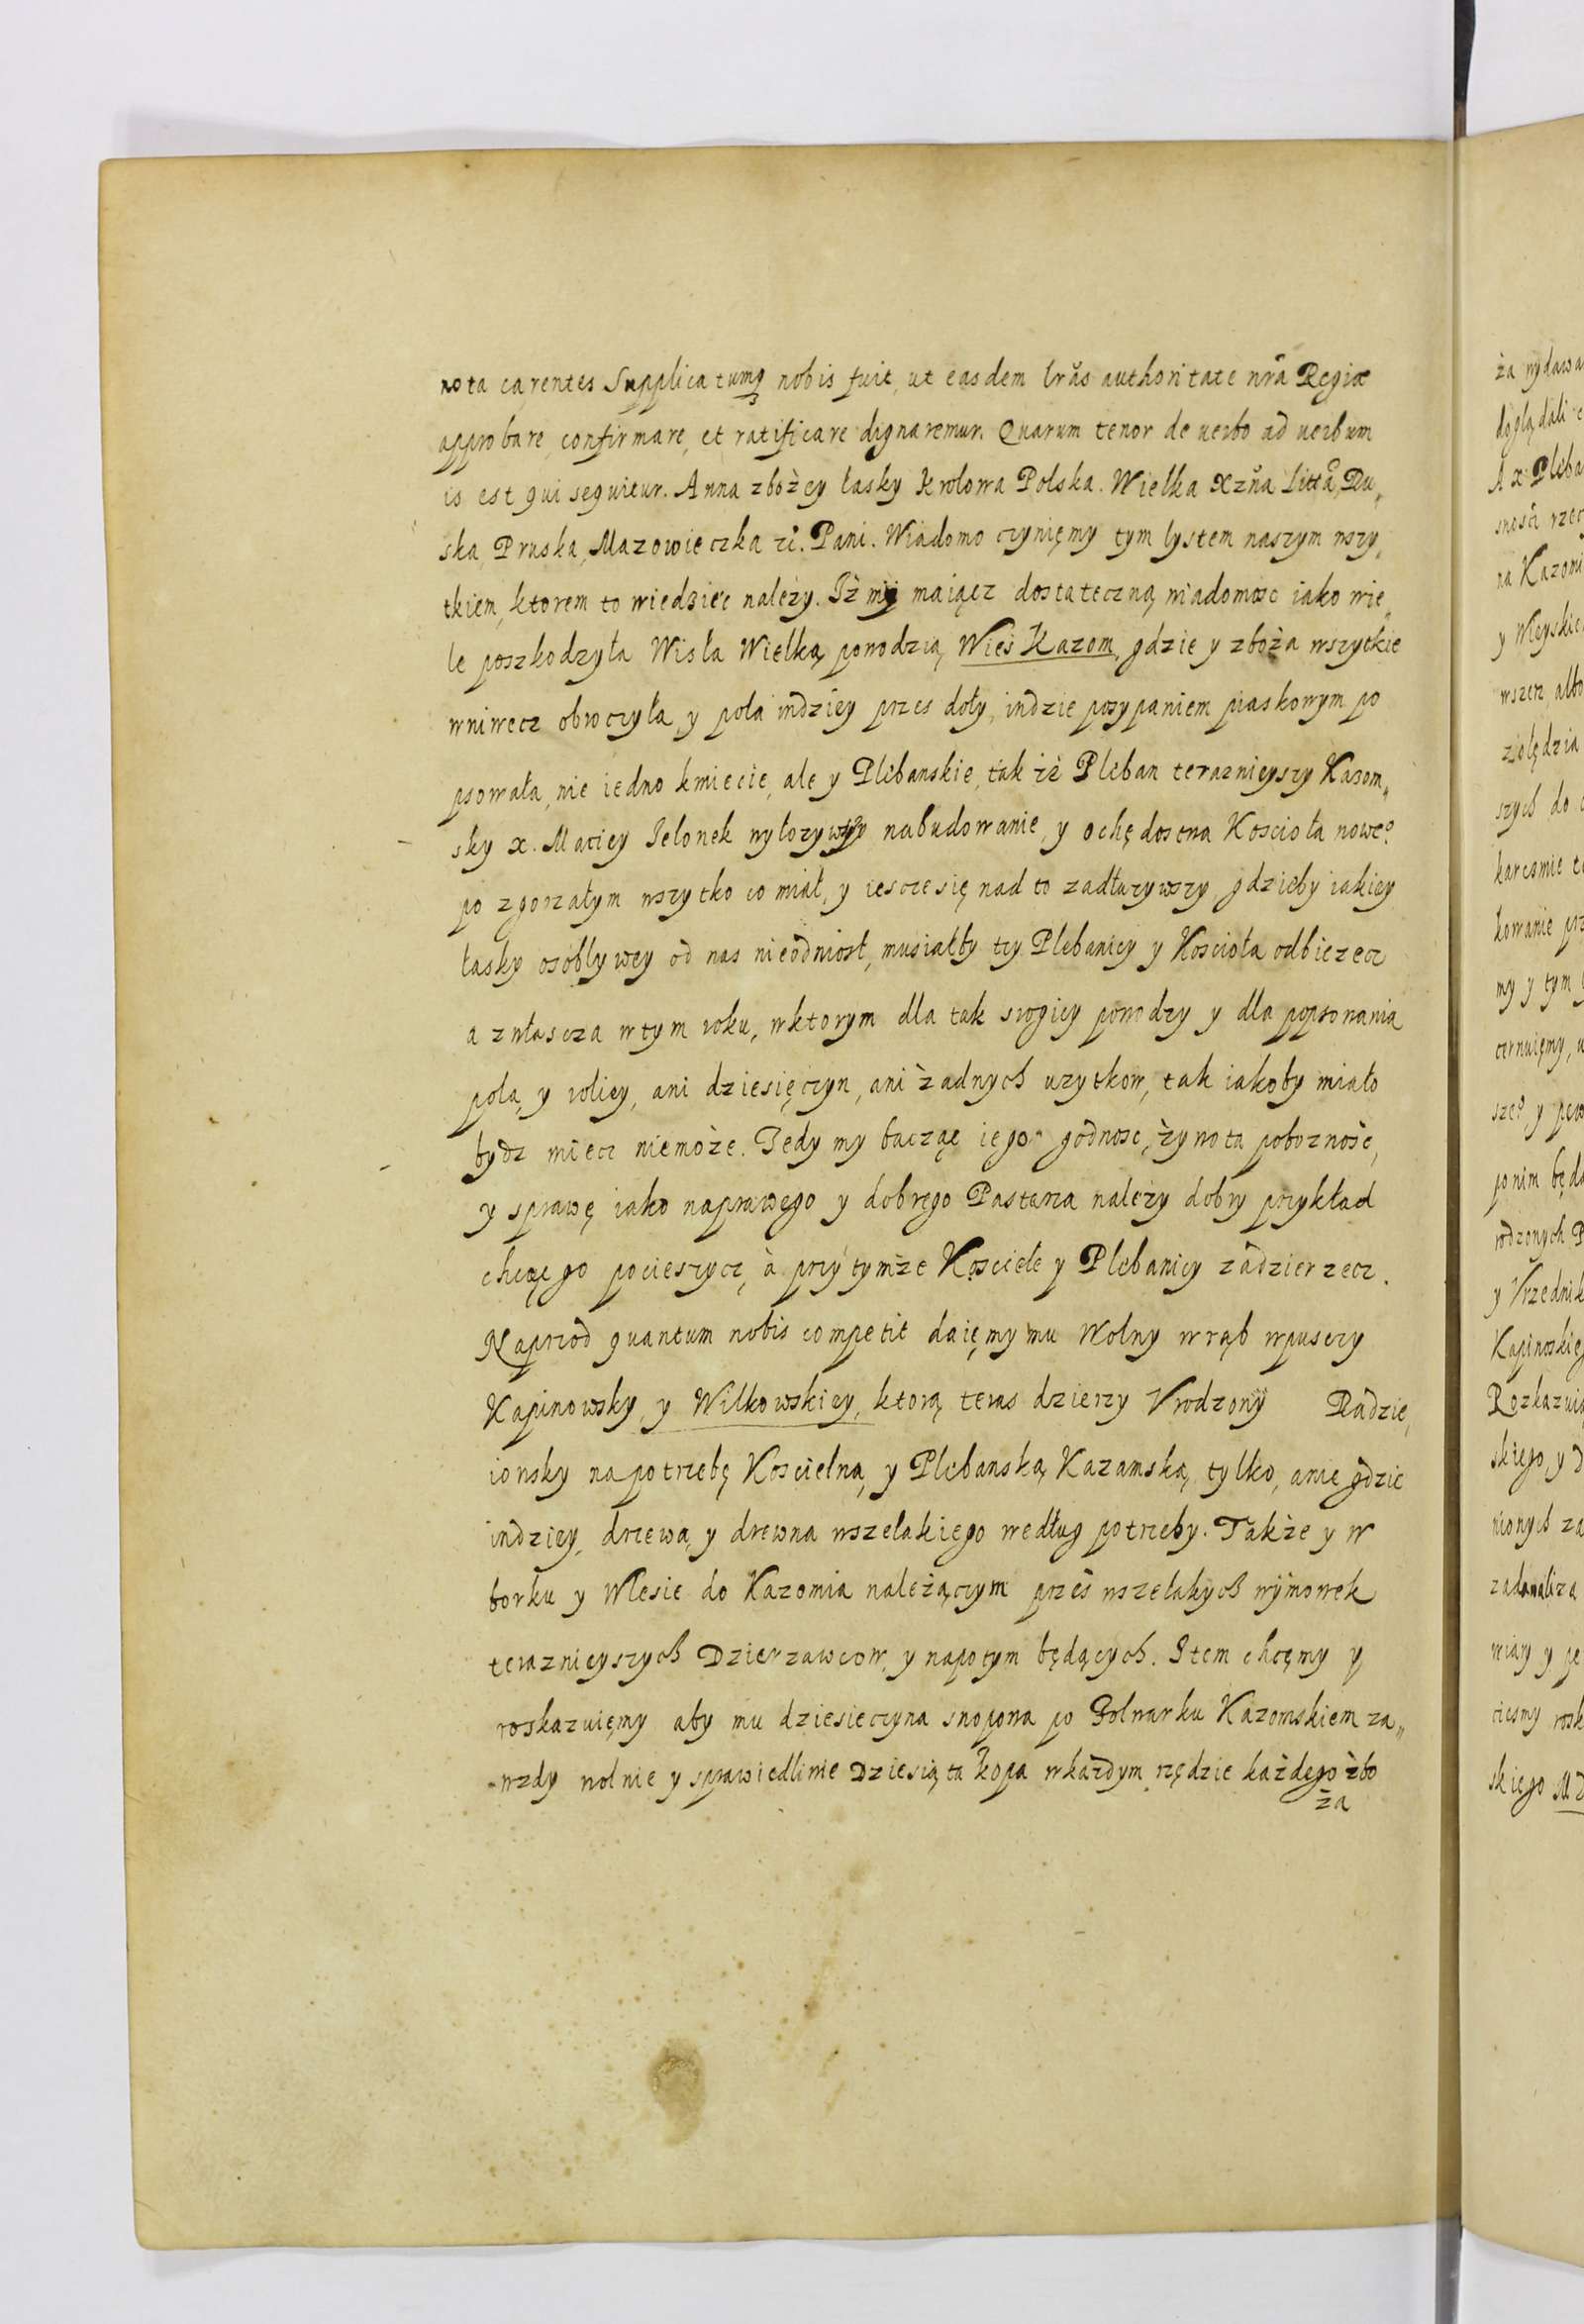 nota carentes Supplicatumq nobis fuit, ut easdem lrãs authoritate nrã Regia
approbare, confirmare, et ratificare dignaremur. Quarum tenor de uerbo ad uerbum
is est qui sequitur. Anna zbożey łasky Krolowa Polska. Wielka Xżna Litta, Ru„
ska, Pruska, Mazowieczka zc̃. Pani. Wiadomo czynięmy tym lystem naszym wszy„
tkiem, ktorem to wiedziec należy. Iż my maiącz dostateczną wiadomosc iako wie„
le poszkodzyła Wisła Wielką powodzią Wieś Kazom, gdzie y zboża wszytkie
wniwecz obroczyła, y pola indziey przes doły, indzie posypaniem piaskowym po
psowała, nie iedno kmiecie, ale y Plebanskie, tak iż Pleban teraznieyszy Kazom„
sky x. Maciey Jelonek wyłozywszy nabudowanie, y ochędostwa Kosciola noweo
po zgorzałym wszytko co miał, y iescze się nad to zadłuzywszy, gdzieby iakiey
łasky osoblywey od nas nieodniosł, musiałby tey Plebaniey y Kosciola odbiezecz
a zwłascza wtym roku, wktorym dla tak srogiey powodzy y dla popsowania
pola, y roliey, ani dziesięczyn, ani żadnych uzytkow, tak iakoby miało
bydz miecz niemoże. Tedy my bacząc iego godnosc, żywota pobozność,
y sprawę iako naprawego y dobrego Pasterza należy dobry przykład
chcąc go pocieszycz, à przy tymże Kosciele y Plebaniey zadzierzecz.
Naprzod quantum nobis competit daięmy mu Wolny wrąb wpusczy
Kapinowsky, y Wilkowskiey, ktorą teras dzierzy Vrodzony Radzie„
iowsky na potrzebę Koscielną, y Plebanską Kazamską tylko, anie gdzie
indziey, drzewa, y drewna wszelakiego według potrzeby. Także y w
borku y Wlesie do Kazomia należączym przes wszelakych wymowek
teraznieyszych Dzierzawcow, y napotym będących. Item chcęmy y
roskazuięmy aby mu dziesieczyna snopowa po Folwarku Kazomskiem za„
wzdy wolnie y sprawiedliwie Dziesiąta kopa wkażdym rzędzie każdego zbo
ża